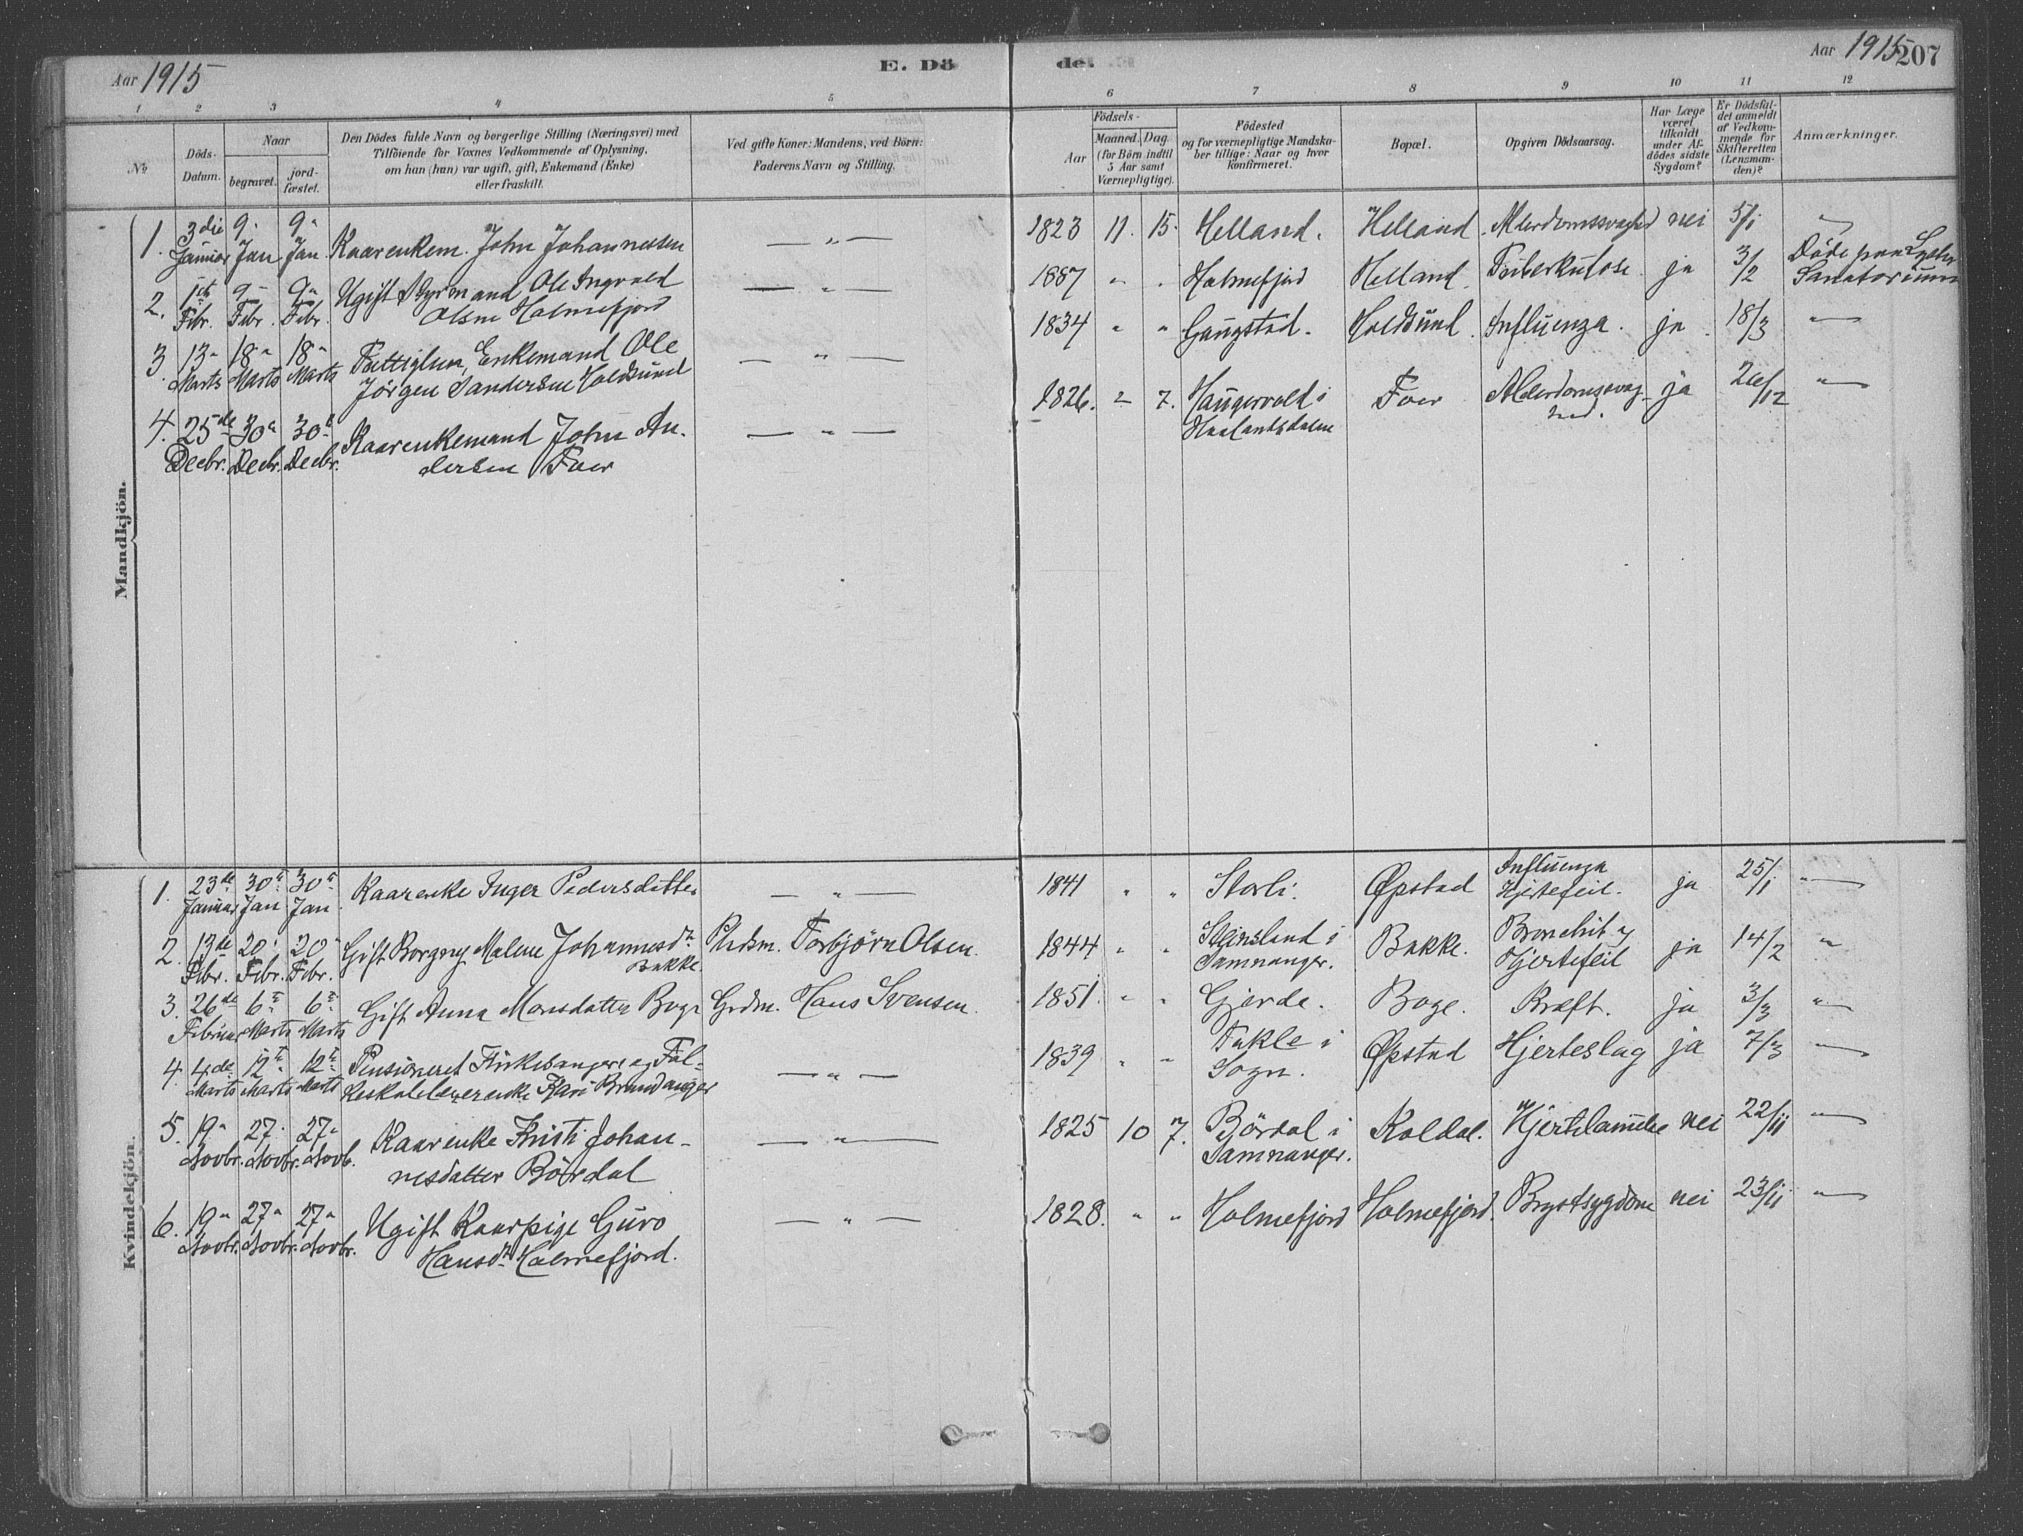 Aar 1915
E. Dö
de.
Aar 1915
207
1 2 3 4 5 6 7 8 9 10 11 12
No
Döds-
Datum.
Naar
begravet.
jord-
fæstet.
Den Dödes fulde Navn og borgerlige Stilling (Næringsvei) med
Tilföiende for Voxnes Vedkommende af Oplysning,
om han (hun) var ugift, gift, Enkemand (Enke)
eller fraskilt.
Ved gifte Koner: Mandens, ved Börn:
Faderens Navn og Stilling.
Födsels-
Aar
Maaned. Dag.
(for Börn indtil
5 Aar samt
Værnepligtige).
Födested
og for værnepligtige Mandska-
ber tillige: Naar og hvor
konfirmeret.
Bopæl.
Opgiven Dödsaarsag.
Har Læge
været
tilkaldt
under Af-
dödes sidste
Sygdom?
Er Dödsfal-
det anmeldt
af Vedkom-
mende for
Skifteretten
(Lensman-
den)?
Anmærkninger.
Mandkjön.
1. 3die Januar 9. Jan 9" Jan. Kaarenkem. John Johannessen — " — 1823 11. 15. Helland. Helland Alderdomssvaghed nei 5/1 "
2. 1ste Febr. 9" Febr. 9" Febr. Ugift Styrmand Ole Ingvald
Olsen Holmefjord — " — 1887 " " Holmefjord Helland. Tuberkulose. ja 3/2 Døde paa Lyster
Sanatorium
3. 13" Marts 18" Marts 18" Marts Fattiglem, Enkemand Ole
Jörgen Sandersen Holdsund — " — 1834 " " Gaugstad. Holdsund. Influenza. ja. 18/3 "
4. 25de Decbr. 30" Decbr. 30" Decbr. Kaarenkemand John An-
dersen Foer — " — 1826. 2 7. Haugervold i
Haalandsdalen Foer Alderdomssvag-
hed. ja 26/12 "
Kvindekjön.
1. 23de Januar 30te Jan 30te Jan. Kaarenke Inger Pedersdatter — " — 1841 " " Storli. Øpstad Influenza
Hjertefeil. ja 25/1 "
2. 13de Febr. 20" Febr. 20" Febr. Gift Borgny Malene Johannesdtr
Bakke. Pldsm. Torbjørn Olsen. 1844 " " Steinsland i
Samnanger. Bakke. Bronchit og
Hjertefeil ja 14/2 "
3. 26de Februar 6te Marts 6te Marts Gift Anna Monsdatter Boge Grdm. Hans Svensen. 1851. " " Gjerde. Boge. Kræft. ja 3/3 "
4. 4de Marts 12te Marts 12te Marts Pensioneret Kirkesanger og Fol-
keskolelærerenke Kari Brandanger — " — 1839 " " Takle i
Sogn. Øpstad Hjerteslag ja 7/3 "
5. 19" Novbr. 27" Novbr. 27" Novb. Kaarenke Kristi Johan-
nesdatter Bördal — " — 1825 10 7. Björdal i
Samnanger. Koldal. Hjertelammelse nei 22/11 "
6. 19" Novbr. 27" Novbr. 27" Novbr. Ugift Kaarpige Guro
Hansdtr Holmefjord. — " — 1828. " " Holmefjord Holmefjord. Brystsygdom nei 23/11 "